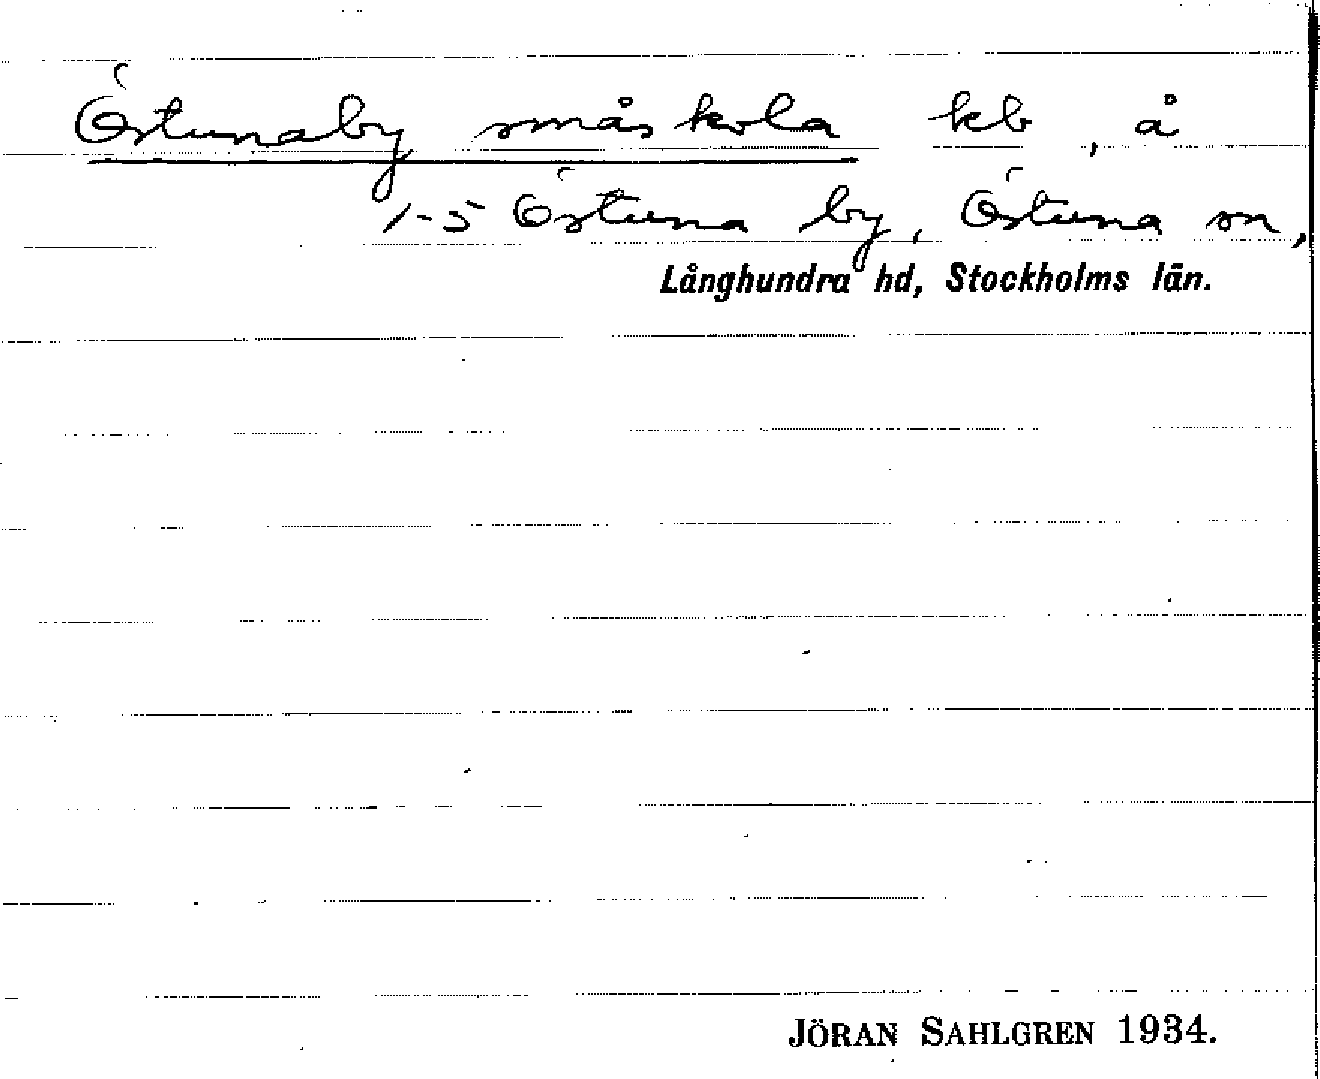 Östunaby småskola kb, å
1-5 Östuna by, Östuna sn,
Långhundra hd, Stockholms län.
JÖRAN SAHLGREN 1934.